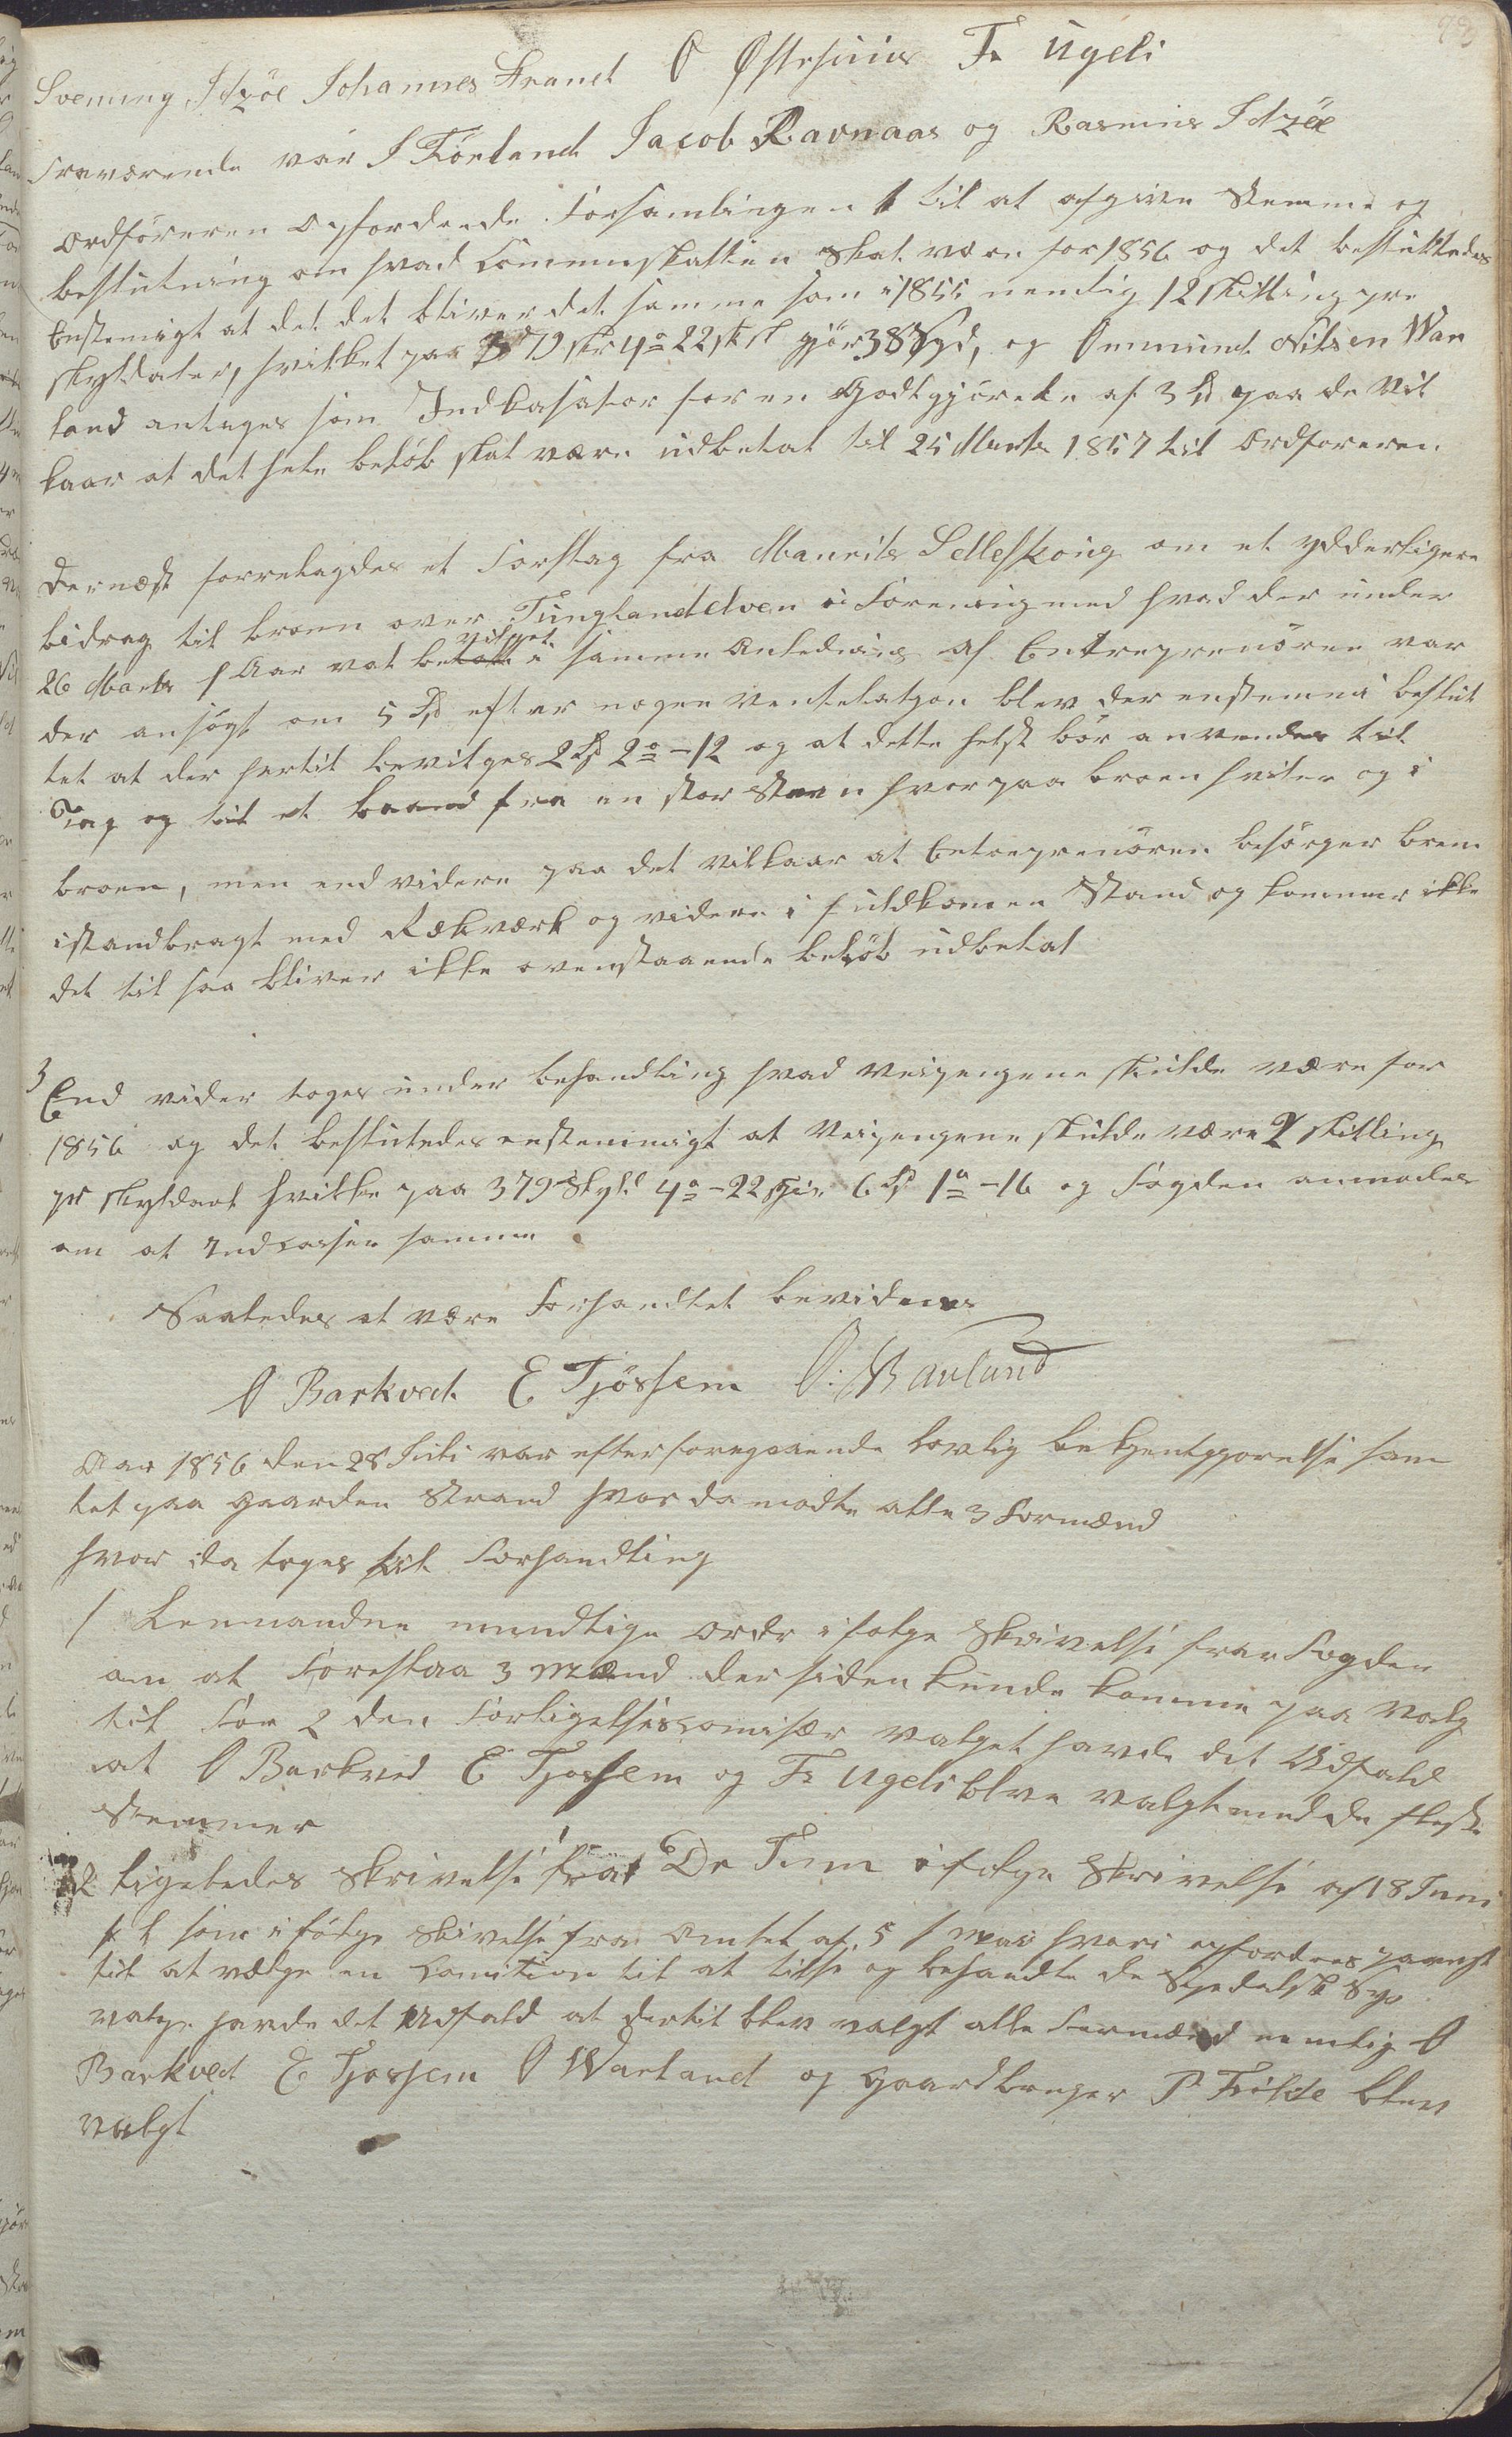 93
Svenung Idzöe Johannes Strand O Østrhuus Fr Ugeli
fraværende var S Törland Jacob Ravnaas og Rasmus Idzöe
Ordföreren opfordrede Forsamlingen til at afgive Stemme og
beslutning om hvad Communskatten skal være for 1856 og det besluttedes
Enstemigt at det det bliver det samme som i 1855 nemlig 12 skilling pr
skyldaler, hvilket paa 379 skr 4 o 22 sk gjör 38 Spd, og Ommund Nilsen War
land antages som Indkasator for en Godtgjörelse af 3 Spd paa de Vil
kaar at det hele belöb skal være udbetal til 25 Marts 1857 til Ordföreren
Dernæst forretagdes et Forslag fra Maurits Selleskoug om et ydderligere
bidrag til broen over Tunglandelven i Forening med hvad der under
26 Marts f Aar vat bevilget i samme Anledning af Entreprenören var
der ansögt om 5 Spd efter nogen ventelatzon blev der enstemmi beslut
tet at der hertil bevilges 2 Spd 2 o - 12 og at dette helst bör anvendes til
Tag og til et baand fra en stor Steen hvorpaa broen hviler og i
broen, men endvidere paa det vilkaar at Entreprenören besörger broen
istandbragt med Rækværk og videre i fuldkomen Stand og kommer ikke
det til saa bliver ikke ovenstaaende belöb udbetal
3
End vider toges under behandling hvad Veipengene skulde være for
1856 og det beslutedes enstemmigt at Veipengene skulde være 2 skilling
pr skyldaol hvilke paa 379 Skyld 4 o - 22 gjör 6 Spd 1 o - 16 og Fogden anmodes
om at Indcasser samme
Saaledes at være Forhandlet bevidnes
O Barkved E Tjössem O. Warland
Aar 1856 den 28 Juli var efter foregaaende lovlig bekjentgjörelse sam
let paa Gaarden Strand hvor da mödte alle 3 Formænd
hvor da toges til Forhandling
1 Lensmandens mundtlige Ordr i fölge Skrivelse fra Fogden
om at Foreslaa 3 Mænd der siden kunde komme paa Valg
til For 2 den Forligelsescomisær valget havde det Udfald
at O Barkved E Tjossem og Fr Ugeli blve valgt med de fleste
Stemmer
2 ligeledes Skrivelse fra Dr Tum i fölge Skrivelse af 18 Juni
som i fölge Skrivelse fra Amtet af 5 Mai hvori opfordres
til at vælge en Comition til at tilse og behandle de Spedalsk Sye
valge havde det Udfald at dertil blev valgt alle Formænd nemlig O
Barkved E Tjossem O Warland og Gaardbruger P Frölde blev
valgt